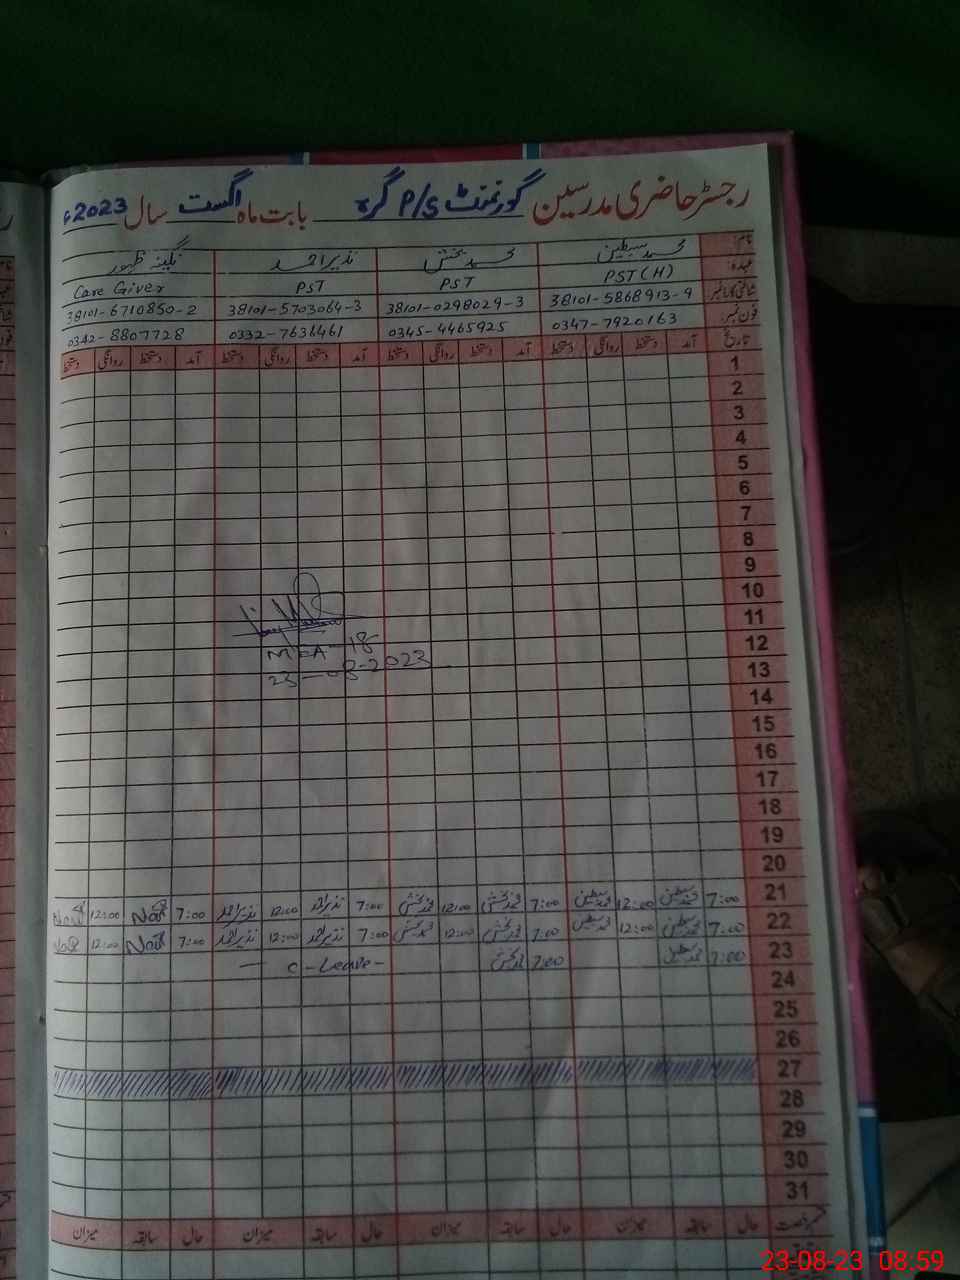 رجسٹر حاضری مدرسین گورنمنٹ P/S گرہ بابت ماہ اگست سال 2023ء
نام: محمد سبطین محمد بخش نذیر احمد نگینہ ظہور
عہدہ: PST (H) PST PST Care Giver
شناختی کارڈ نمبر 38101-5868913-9 38101-0298029-3 38101-5703064-3 38101-6710850-2
فون نمبر: 0347-7920163 0345-4465925 0332-7636461 0342-8807728
تاریخ آمد دستخط روانگی دستخط آمد دستخط روانگی دستخط آمد دستخط روانگی دستخط آمد دستخط روانگی دستخط
1
2
3
4
5
6
7
8
9
10
11
12
MEA-18
13
23-08-2023
14
15
16
17
18
19
20
21 7:00 محمد سبطین 12:00 محمد سبطین 7:00 محمد بخش 12:00 محمد بخش 7:00 نذیر احمد 12:00 نذیر احمد 7:00 12:00
22 7:00 محمد سبطین 12:00 محمد سبطین 7:00 محمد بخش 12:00 محمد بخش 7:00 نذیر احمد 12:00 نذیر احمد 7:00 12:00
23 7:00 محمد سبطین 7:00 محمد بخش — C-Leave-
24
25
26
27
28
29
30
31
حال سابقہ میزان حال سابقہ میزان حال سابقہ میزان حال سابقہ میزان
23-08-23 08:59